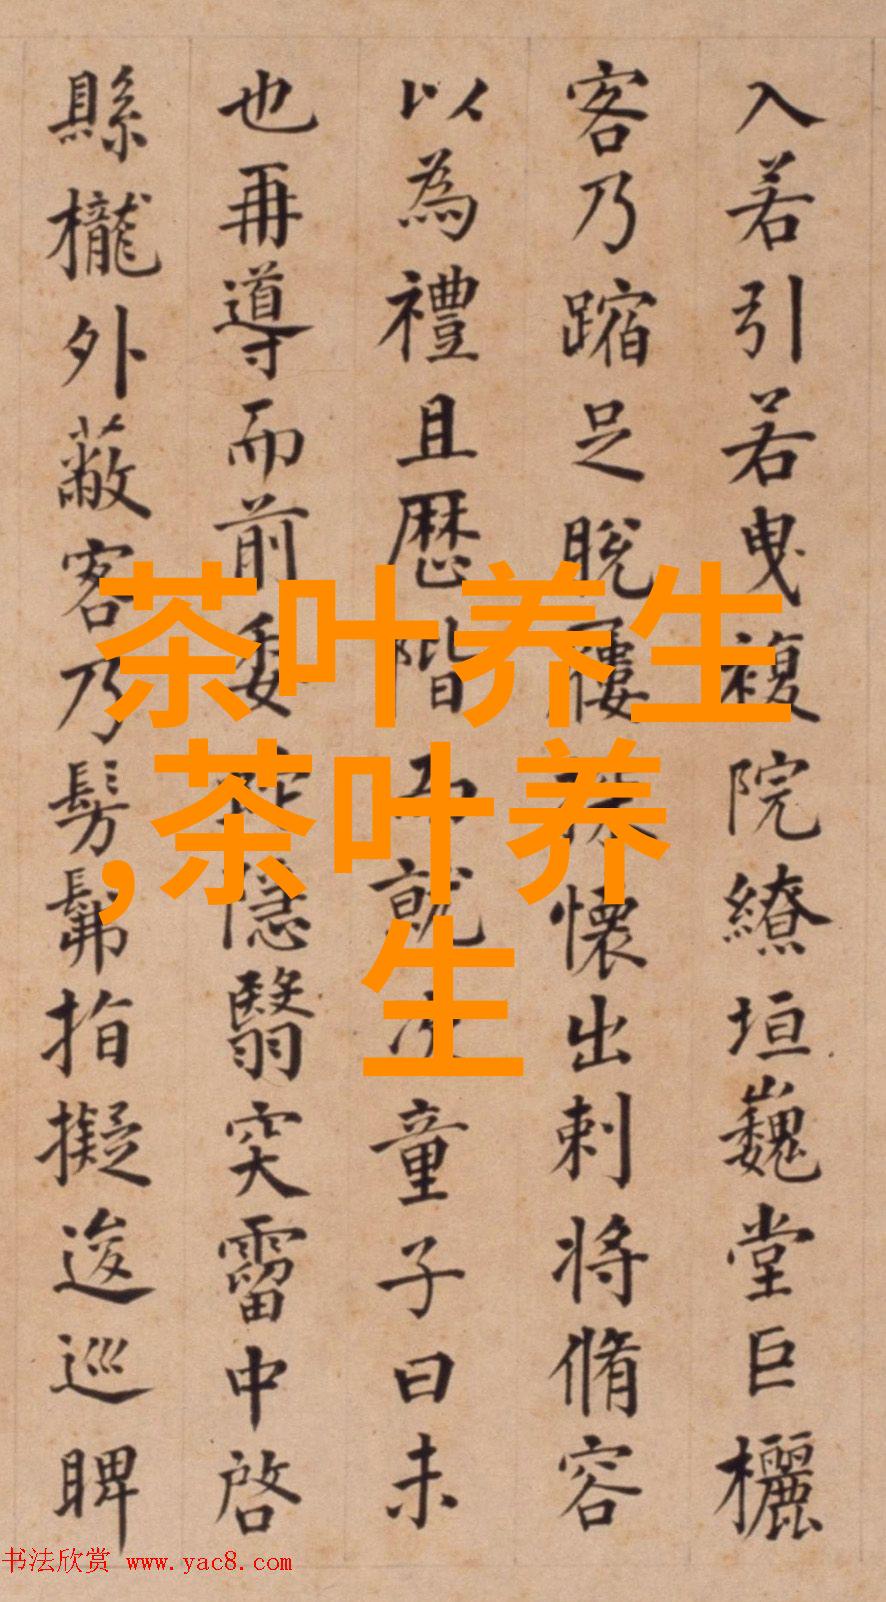 入若引若曳複院繚垣巍堂巨欐
客乃蹜足脫屨懷出刺將脩容
以為禮且歷階而就次童子曰未
也再導而前委隱翳突霤中啓
縣櫳外蔽客乃髣髴指擬逡巡睥
茶叶养生
,茶叶养
生
书法欣赏 www.yac8.com